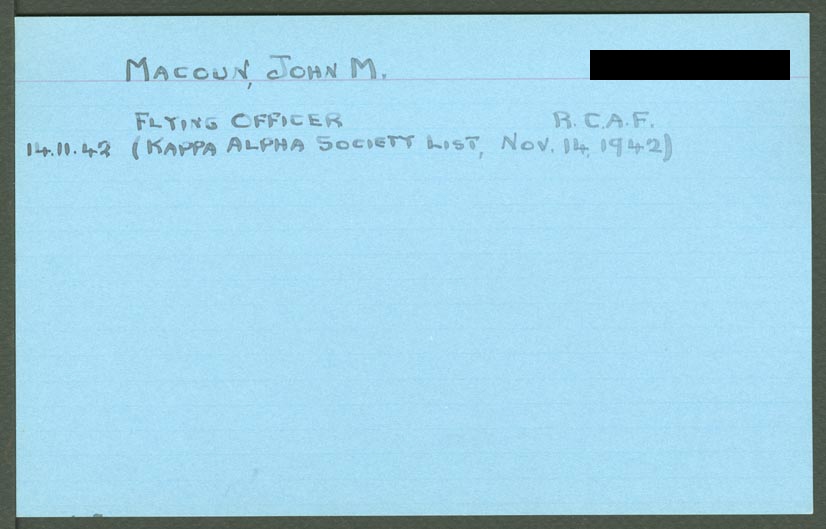 MACOUN, JOHN M.
FLYING OFFICER R.C.A.F.
14.11.42 (KAPPA ALPHA SOCIETY LIST, NOV. 14, 1942)